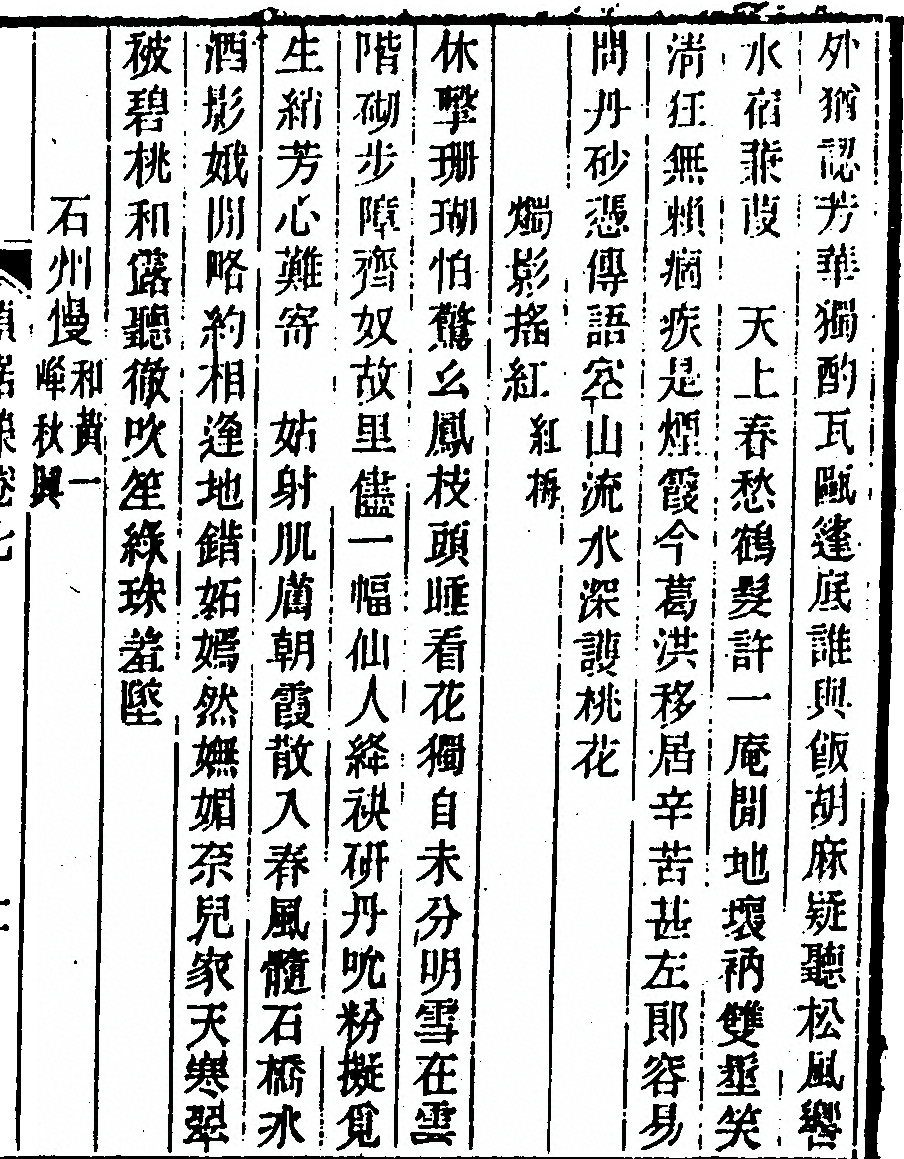 外猶認芳華獨酌瓦甌篷底誰與飯胡麻疑聽松風響
水宿蒹葭　天上春愁鶴髮許一庵閒地壞衲雙垂笑
淸狂無賴痼疾是煙霞今葛洪移居辛苦甚左郞容易
問丹砂憑傳語空山流水深護桃花
燭影搖紅紅梅
休擊珊瑚怕驚么鳳枝頭睡看花獨自未分明雪在雲
階砌步障齊奴故里儘一幅仙人絳袂硏丹吮粉擬覓
生綃芳心難寄　姑射肌膚朝霞散入春風髓石橋氷
酒影娥閒略約相逢地錯妬嫣然嫵媚奈兒家天寒翠
被碧桃和露聽徹吹笙綠珠羞墜
石州慢和黃一峰秋興